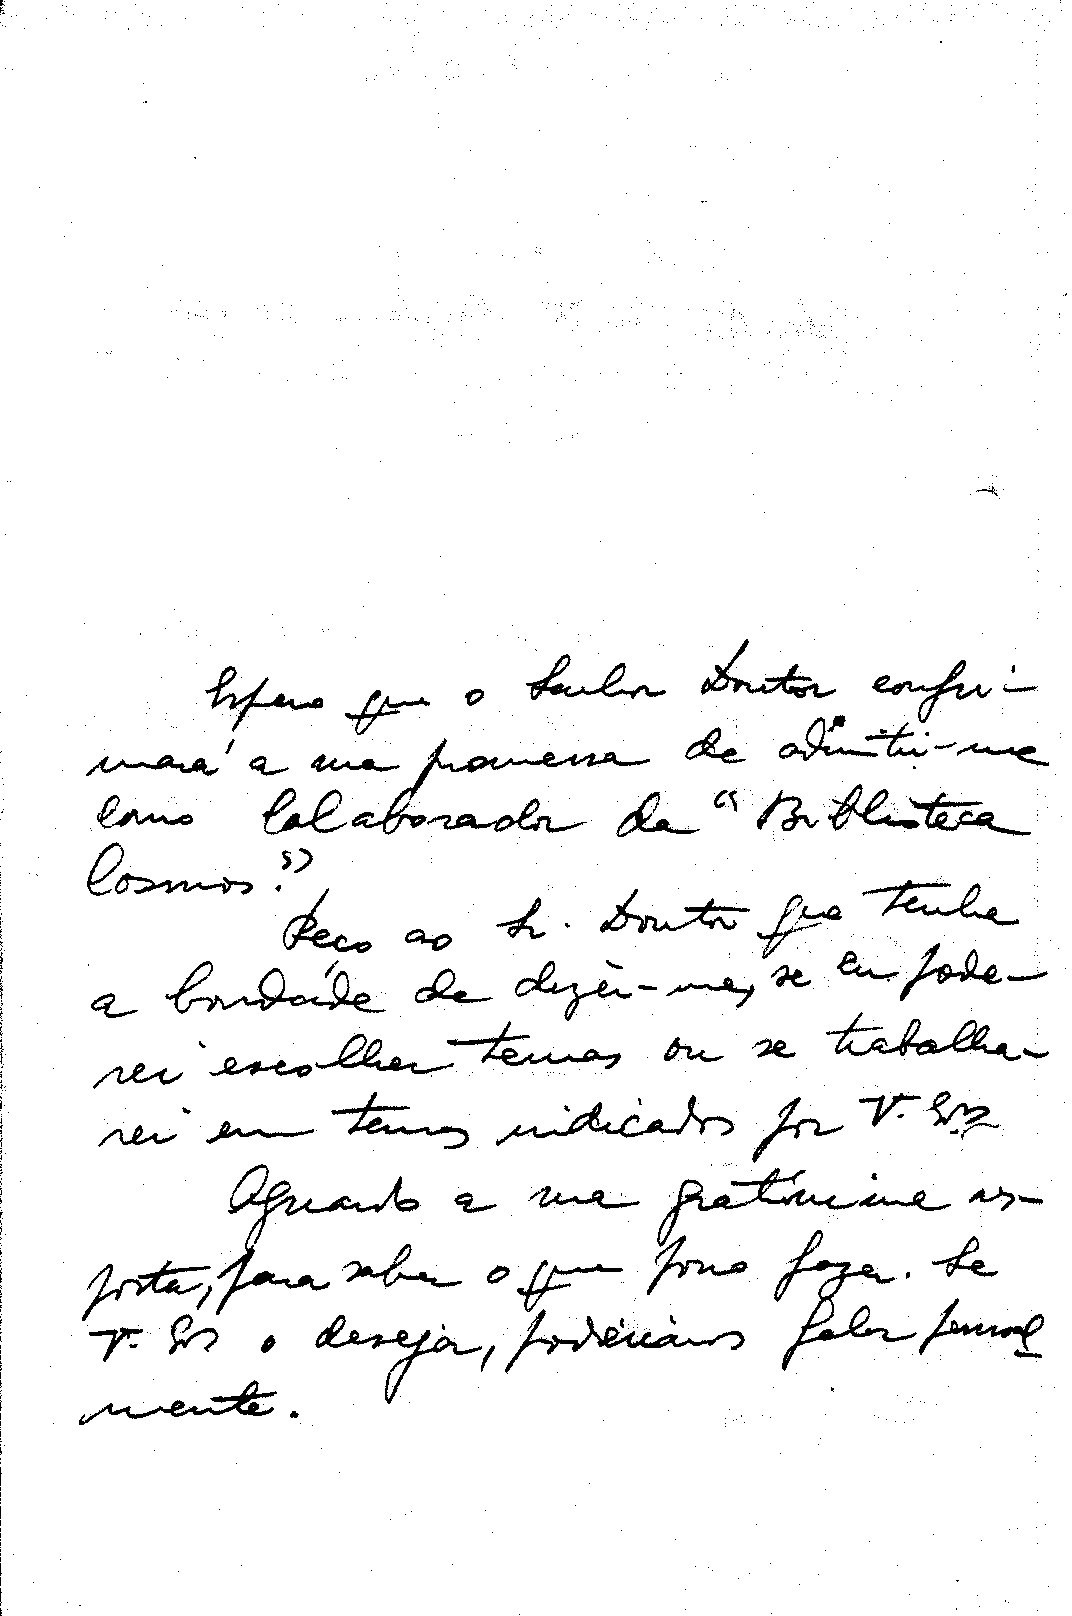 Espero que o Senhor Doutor confir-
mará a sua promessa de admitir-me
como Colaborador da "Biblioteca
Cosmos."
Peço ao Sr. Doutor que tenha
a bondade de dizer-me, se eu pode-
rei escolher temas ou se trabalha-
rei em temas indicados por V. Exª
Aguardo a sua gratíssima res-
posta, para saber o que posso fazer. Se
V. Exª o desejar, poderíamos falar pessoal
mente.